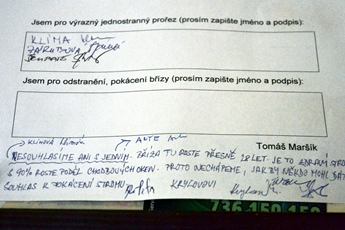 Jsem pro výrazný jednostranný prořez (prosím zapište jméno a podpis):
KLÍMA
Jsem pro odstranění, pokácení břízy (prosím zapište jméno a podpis):
Tomáš Maršik
NESOUHLASÍME ANI S JEDNÍM. BŘÍZA TU ROSTE PŘESNĚ 18 LET. JE TO ZDRAVÝ STROM
S 90% ROSTE PODÉL CHODBOVÝCH OKEN. PROTO NECHÁPEME, JAK BY NĚKDO MOHL DÁT
SOUHLAS K POKÁCENÍ STROMU KRYLOVOVI
736 150 150